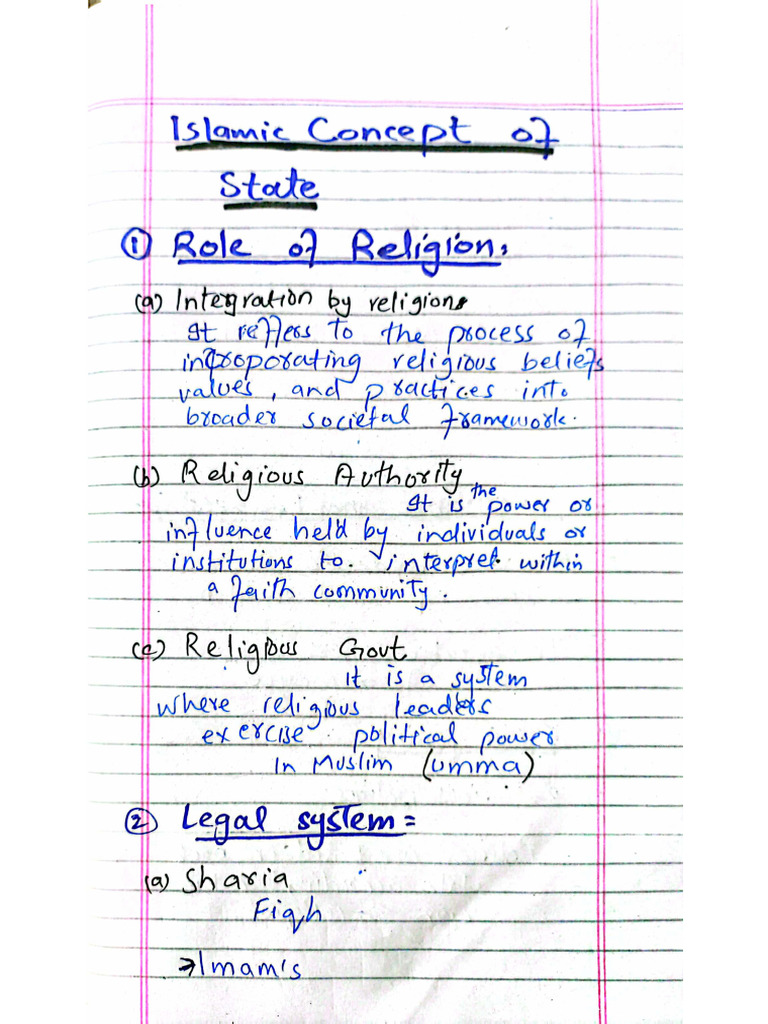 Islamic Concept of
State
① Role of Religion:
(a) Integration by religion
It reffers to the process of
incroporating religious beliefs
values, and practices into
broader societal framework.
(b) Religious Authority
It is the power or
influence held by individuals or
institutions to. interpret within
a faith community.
(c) Religious Govt
It is a system
where religious leaders
exercise political power
In Muslim (umma)
② Legal system =
(a) Sharia
Fiqh
→ Imam's